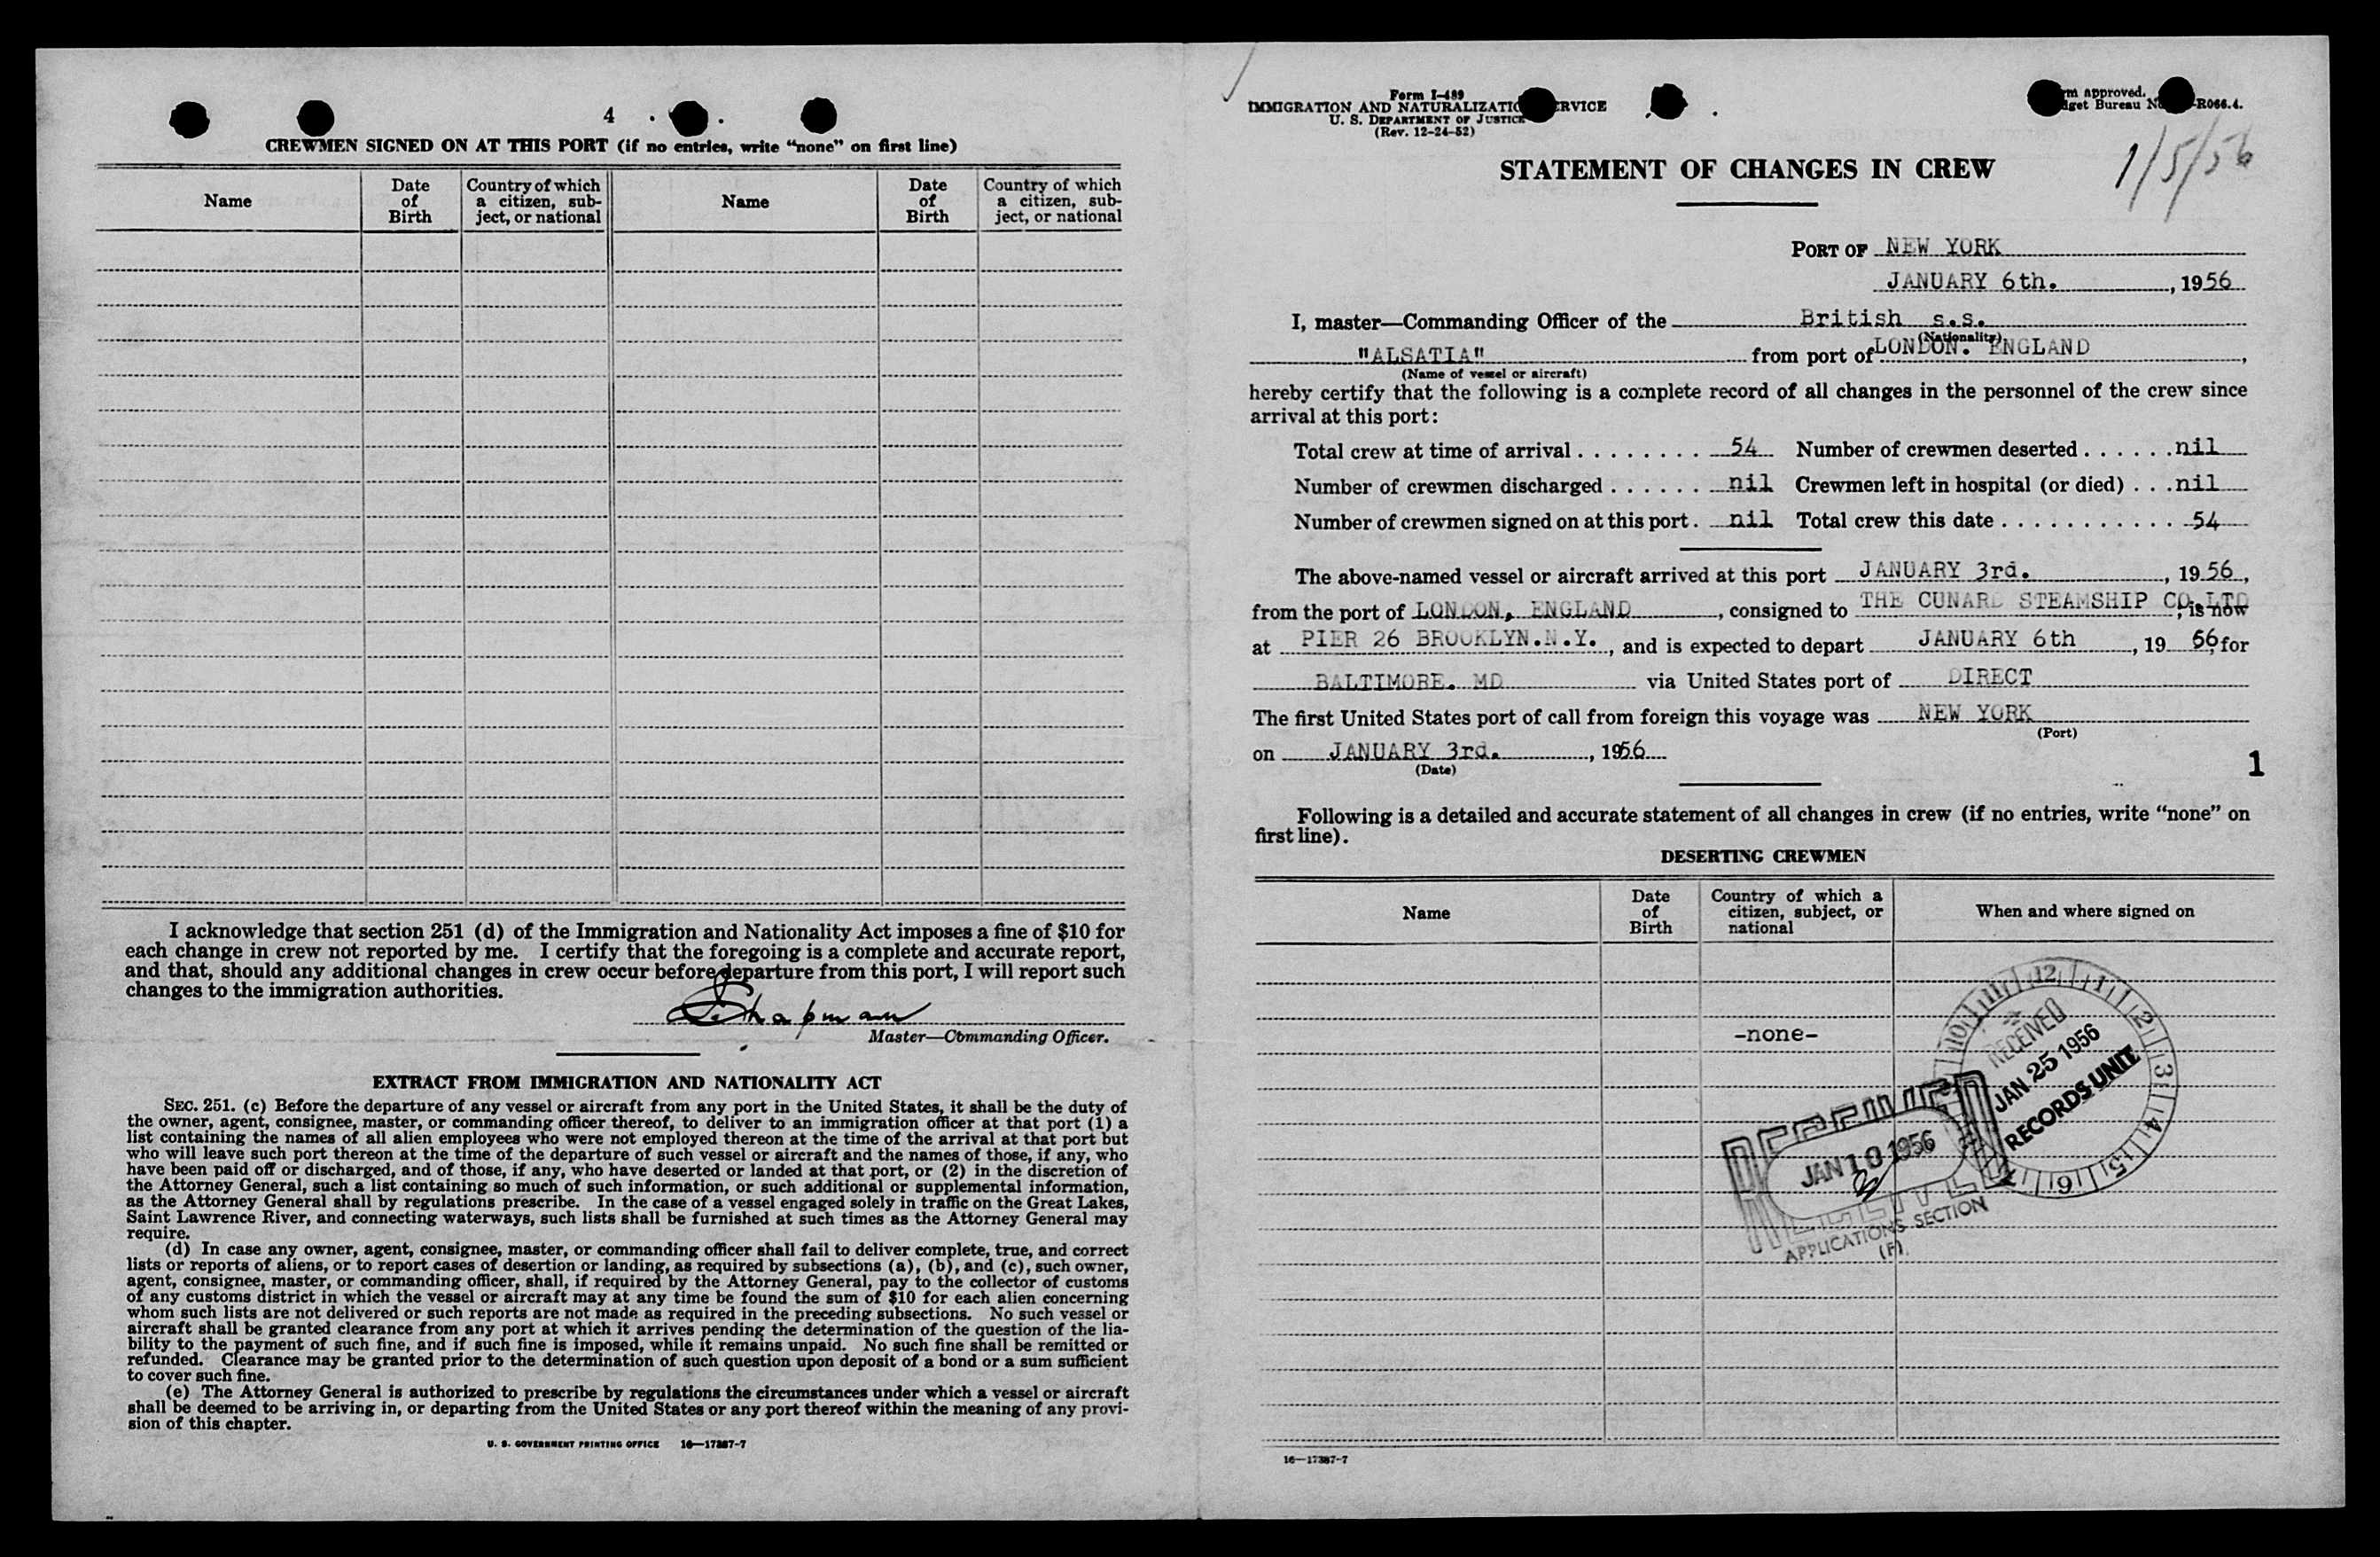 4
CREWMEN SIGNED ON AT THIS PORT (if no entries, write “none” on first line)
Name
Date of Birth
Country of which a citizen, subject, or national
Name
Date of Birth
Country of which a citizen, subject, or national
I acknowledge that section 251 (d) of the Immigration and Nationality Act imposes a fine of $10 for
each change in crew not reported by me. I certify that the foregoing is a complete and accurate report,
and that, should any additional changes in crew occur before departure from this port, I will report such
changes to the immigration authorities.
Chapman
Master—Commanding Officer.
EXTRACT FROM IMMIGRATION AND NATIONALITY ACT
SEC. 251. (c) Before the departure of any vessel or aircraft from any port in the United States, it shall be the duty of
the owner, agent, consignee, master, or commanding officer thereof, to deliver to an immigration officer at that port (1) a
list containing the names of all alien employees who were not employed thereon at the time of the arrival at that port but
who will leave such port thereon at the time of the departure of such vessel or aircraft and the names of those, if any, who
have been paid off or discharged, and of those, if any, who have deserted or landed at that port, or (2) in the discretion of
the Attorney General, such a list containing so much of such information, or such additional or supplemental information,
as the Attorney General shall by regulations prescribe. In the case of a vessel engaged solely in traffic on the Great Lakes,
Saint Lawrence River, and connecting waterways, such lists shall be furnished at such times as the Attorney General may
require.
(d) In case any owner, agent, consignee, master, or commanding officer shall fail to deliver complete, true, and correct
lists or reports of aliens, or to report cases of desertion or landing, as required by subsections (a), (b), and (c), such owner,
agent, consignee, master, or commanding officer, shall, if required by the Attorney General, pay to the collector of customs
of any customs district in which the vessel or aircraft may at any time be found the sum of $10 for each alien concerning
whom such lists are not delivered or such reports are not made as required in the preceding subsections. No such vessel or
aircraft shall be granted clearance from any port at which it arrives pending the determination of the question of the lia-
bility to the payment of such fine, and if such fine is imposed, while it remains unpaid. No such fine shall be remitted or
refunded. Clearance may be granted prior to the determination of such question upon deposit of a bond or a sum sufficient
to cover such fine.
(e) The Attorney General is authorized to prescribe by regulations the circumstances under which a vessel or aircraft
shall be deemed to be arriving in, or departing from the United States or any port thereof within the meaning of any provi-
sion of this chapter.
U. S. GOVERNMENT PRINTING OFFICE 16—17387-7
Form I-489
IMMIGRATION AND NATURALIZATIO RVICE
U. S. DEPARTMENT OF JUSTICE
(Rev. 12-24-52)
m approved.
get Bureau N -R066.4.
1/5/56
STATEMENT OF CHANGES IN CREW
PORT OF NEW YORK
JANUARY 6th. , 1956
I, master—Commanding Officer of the British s.s.
(Nationality)
"ALSATIA" from port of LONDON. ENGLAND ,
(Name of vessel or aircraft)
hereby certify that the following is a complete record of all changes in the personnel of the crew since
arrival at this port:
Total crew at time of arrival . . . . . . . . . 54 Number of crewmen deserted . . . . . . nil
Number of crewmen discharged . . . . . . nil Crewmen left in hospital (or died) . . . nil
Number of crewmen signed on at this port . nil Total crew this date . . . . . . . . . . . . 54
The above-named vessel or aircraft arrived at this port JANUARY 3rd. , 1956 ,
from the port of LONDON, ENGLAND , consigned to THE CUNARD STEAMSHIP CO. LTD , is now
at PIER 26 BROOKLYN.N.Y. , and is expected to depart JANUARY 6th , 19 56, for
BALTIMORE. MD via United States port of DIRECT
The first United States port of call from foreign this voyage was NEW YORK
(Port)
on JANUARY 3rd. , 1956
(Date)
1
Following is a detailed and accurate statement of all changes in crew (if no entries, write “none” on
first line).
DESERTING CREWMEN
Name
Date of Birth
Country of which a citizen, subject, or national
When and where signed on
-none-
RECEIVED
JAN 25 1956
RECORDS UNIT
12 1 2 3 4 5 6 10 11
RECEIVED
JAN 10 1956
APPLICATIONS SECTION
(F)
16—17387-7